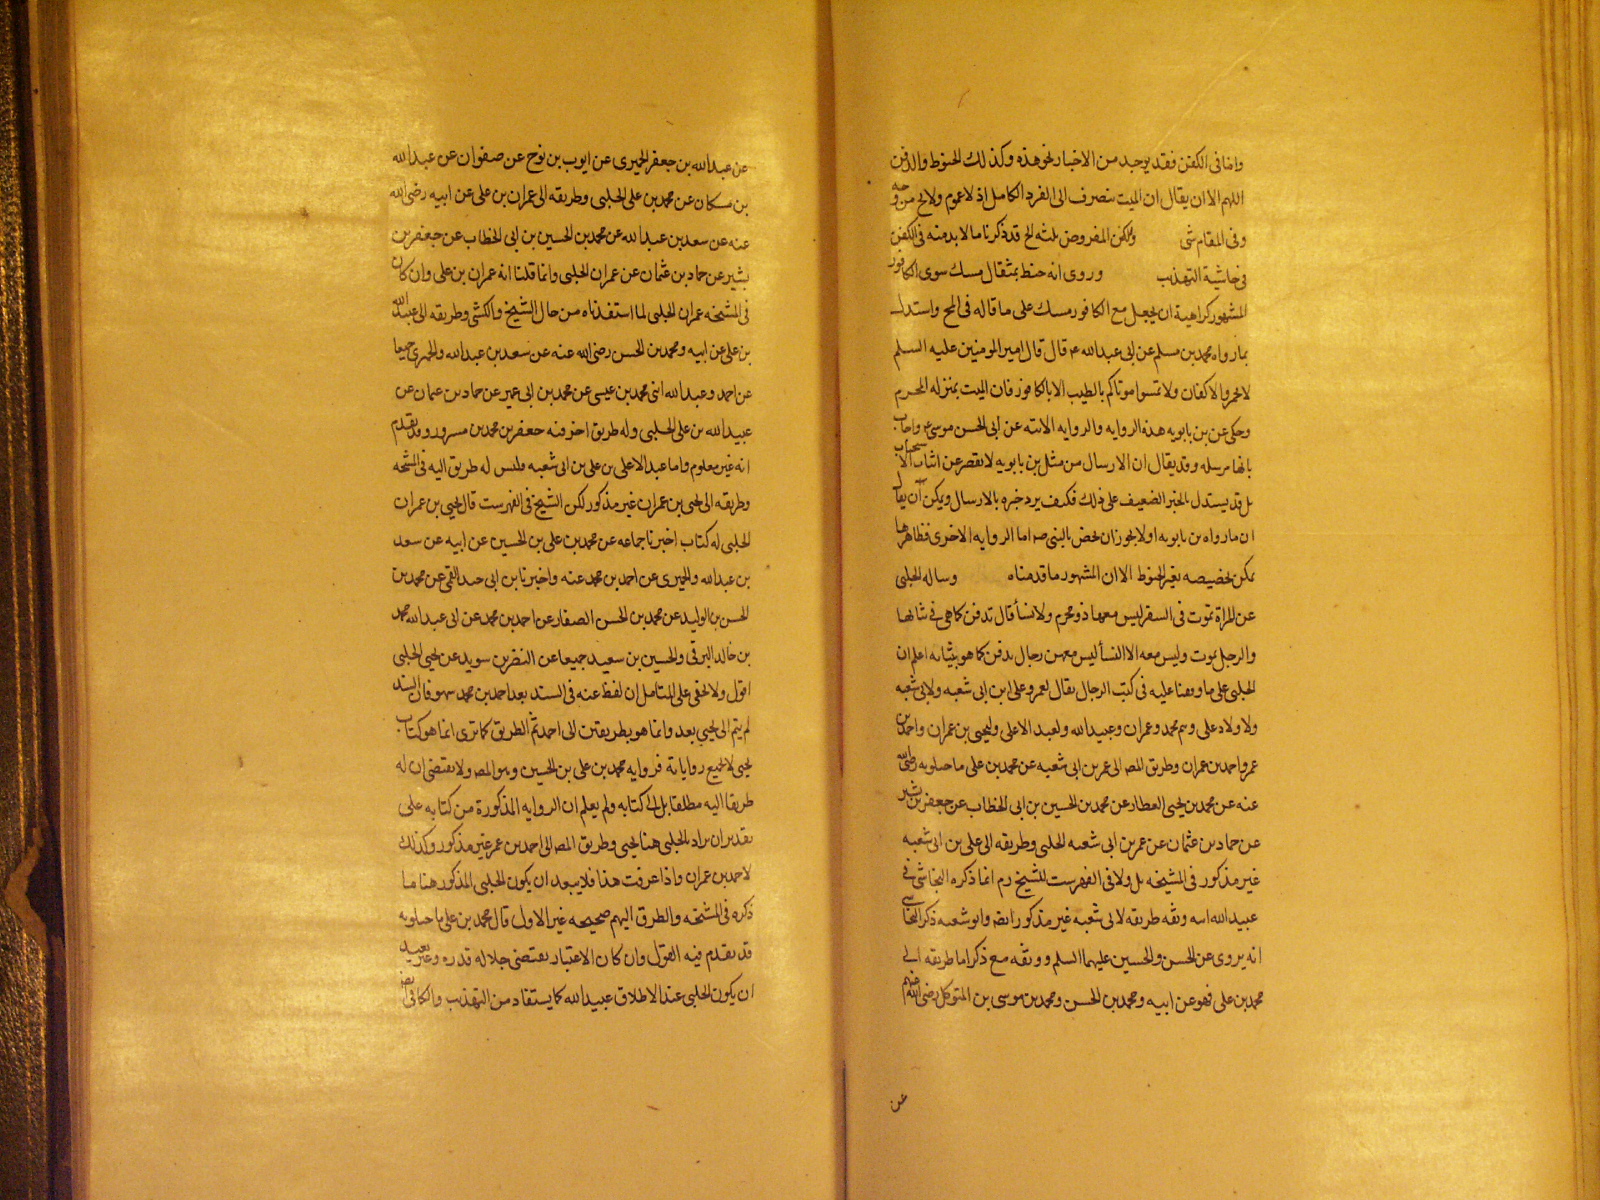 واما فى الكفن فقد يوجد من الاخبار نحو هذه وكذلك الحنوط والدفن
اللهم الا ان يقال ان الميت ينصرف الى الفرد الكامل اذ لا عموم ولا يخ من وجه
وفى المقام شى والكفن المفروض ثلثه الخ قد ذكرنا ما لا بد منه فى الكفن
فى حاشية التهذيب وروى انه حنط بمثقال مسك سوى الكافور
المشهور كراهية ان يجعل مع الكافور مسك على ما قاله فى المح واستدل
بما رواه محمد بن مسلم عن ابى عبدالله ع قال قال امير المومنين عليه السلم
لا تجمروا الاكفان ولا تمسوا موتاكم بالطيب الا بالكافور فان الميت بمنزله المحرم
وحكى عن بن بابويه هذه الروايه والروايه الاتيه عن ابى الحسن موسى ع واجاب
بانها مرسله وقد يقال ان الارسال من مثل بن بابويه لا يقصر عن اثبات الاستحباب
بل قد يستدل بالخبر الضعيف على ذلك فكيف يرد خبره بالارسال ويمكن ان يقال
ان ما رواه بن بابويه اولا يجوز ان يخص بالنبى ص اما الروايه الاخرى فظاهرها
يمكن تخصيصه بغير الحنوط الا ان المشهور ما قدمناه وساله الحلبى
عن المراة تموت فى السفر ليس معها ذو محرم ولا نسأ قال تدفن كما هى فى ثيابها
والرجل يموت وليس معه الا النسأ ليس معهن رجال يدفن كما هو بثيابه اعلم ان
الحلبى على ما وقفنا عليه فى كتب الرجال يقال لعمر وعلى ابن ابى شعبه ولابى شعبه
ولاولاد على وهم محمد وعمران وعبيدالله ولعبد الاعلى وليحيى بن عمران واحمد بن
عمر واحمد بن عمران وطريق المص الى عمر بن ابى شعبه عن محمد بن على ماجيلويه رضى الله
عنه عن محمد بن يحيى العطار عن محمد بن الحسين بن ابى الخطاب عن جعفر بن بشير
عن حماد بن عثمان عن عمر بن ابى شعبه الحلبى وطريقه الى على بن ابى شعبه
غير مذكور فى المشيخه بل ولا فى الفهرست للشيخ ره انما ذكره النجاشى فى
عبيدالله ابنه وثقه طريقه لابى شعبه غير مذكور ايضا وابو شعبه ذكر النجاشى
انه يروى عن الحسن والحسين عليهما السلم ووثقه مع ذكر اما طريقه الى
محمد بن على فهو عن ابيه ومحمد بن الحسن ومحمد بن موسى بن المتوكل رضى الله عنهم
عن
عن عبدالله بن جعفر الحميرى عن ايوب بن نوح عن صفوان عن عبدالله
بن مسكان عن محمد بن على الحلبى وطريقه الى عمران بن على عن ابيه رضى الله
عنه عن سعد بن عبدالله عن محمد بن الحسين بن ابى الخطاب عن جعفر بن
بشير عن حماد بن عثمان عن عمران الحلبى وانما قلنا انه عمران بن على وان كان
فى المشيخه عمران الحلبى لما استفدناه من حال الشيخ والكشى وطريقه الى عبيدالله
بن على عن ابيه ومحمد بن الحسن رضى الله عنه عن سعد بن عبدالله والحميرى جميعا
عن احمد وعبدالله ابنى محمد بن عيسى عن محمد بن ابى عمير عن حماد بن عثمان عن
عبيدالله بن على الحلبى وله طريق اخر فيه جعفر بن محمد بن مسرور وقد تقدم
انه غير معلوم واما عبد الاعلى بن على بن ابى شعبه فليس له طريق اليه فى المشيخه
وطريقه الى يحيى بن عمران غير مذكور لكن الشيخ فى الفهرست قال يحيى بن عمران
الحلبى له كتاب اخبرنا جماعه عن محمد بن على بن الحسين عن ابيه عن سعد
بن عبدالله والحميرى عن احمد بن محمد عنه واخبرنا بن ابى جيد القمى عن محمد بن
الحسن بن الوليد عن محمد بن الحسن الصفار عن احمد بن محمد عن ابى عبدالله محمد
بن خالد البرقى والحسين بن سعيد جميعا عن النضر بن سويد عن يحيى الحلبى
اقول ولا يخفى على المتامل ان لفظ عنه فى السند بعد احمد بن محمد سهو فالسند
لم يتم الى يحيى بعد وانما هو بطريقين الى احمد ثم الطريق كما ترى انما هو كتاب
يحيى لا لجميع رواياته فروايه محمد بن على بن الحسين وهو المص ولا يقتضى ان له
طريقا اليه مطلقا بل الى كتابه ولم يعلم ان الروايه المذكورة من كتابه على
تقدير ان يراد بالحلبى هنا يحيى وطريق المص الى احمد بن عمر غير مذكور وكذلك
لاحمد بن عمران واذا عرفت هذا فلا يبعد ان يكون الحلبى المذكور هنا ما
ذكره فى المشيخه والطرق اليهم صحيحه غير الاول قال محمد بن على ماجيلويه
قد تقدم فيه القول وان كان الاعتبار يقتضى جلاله قدره وغير بعيد
ان يكون الحلبى عند الاطلاق عبيدالله كما يستفاد من التهذيب والكافى ايضا